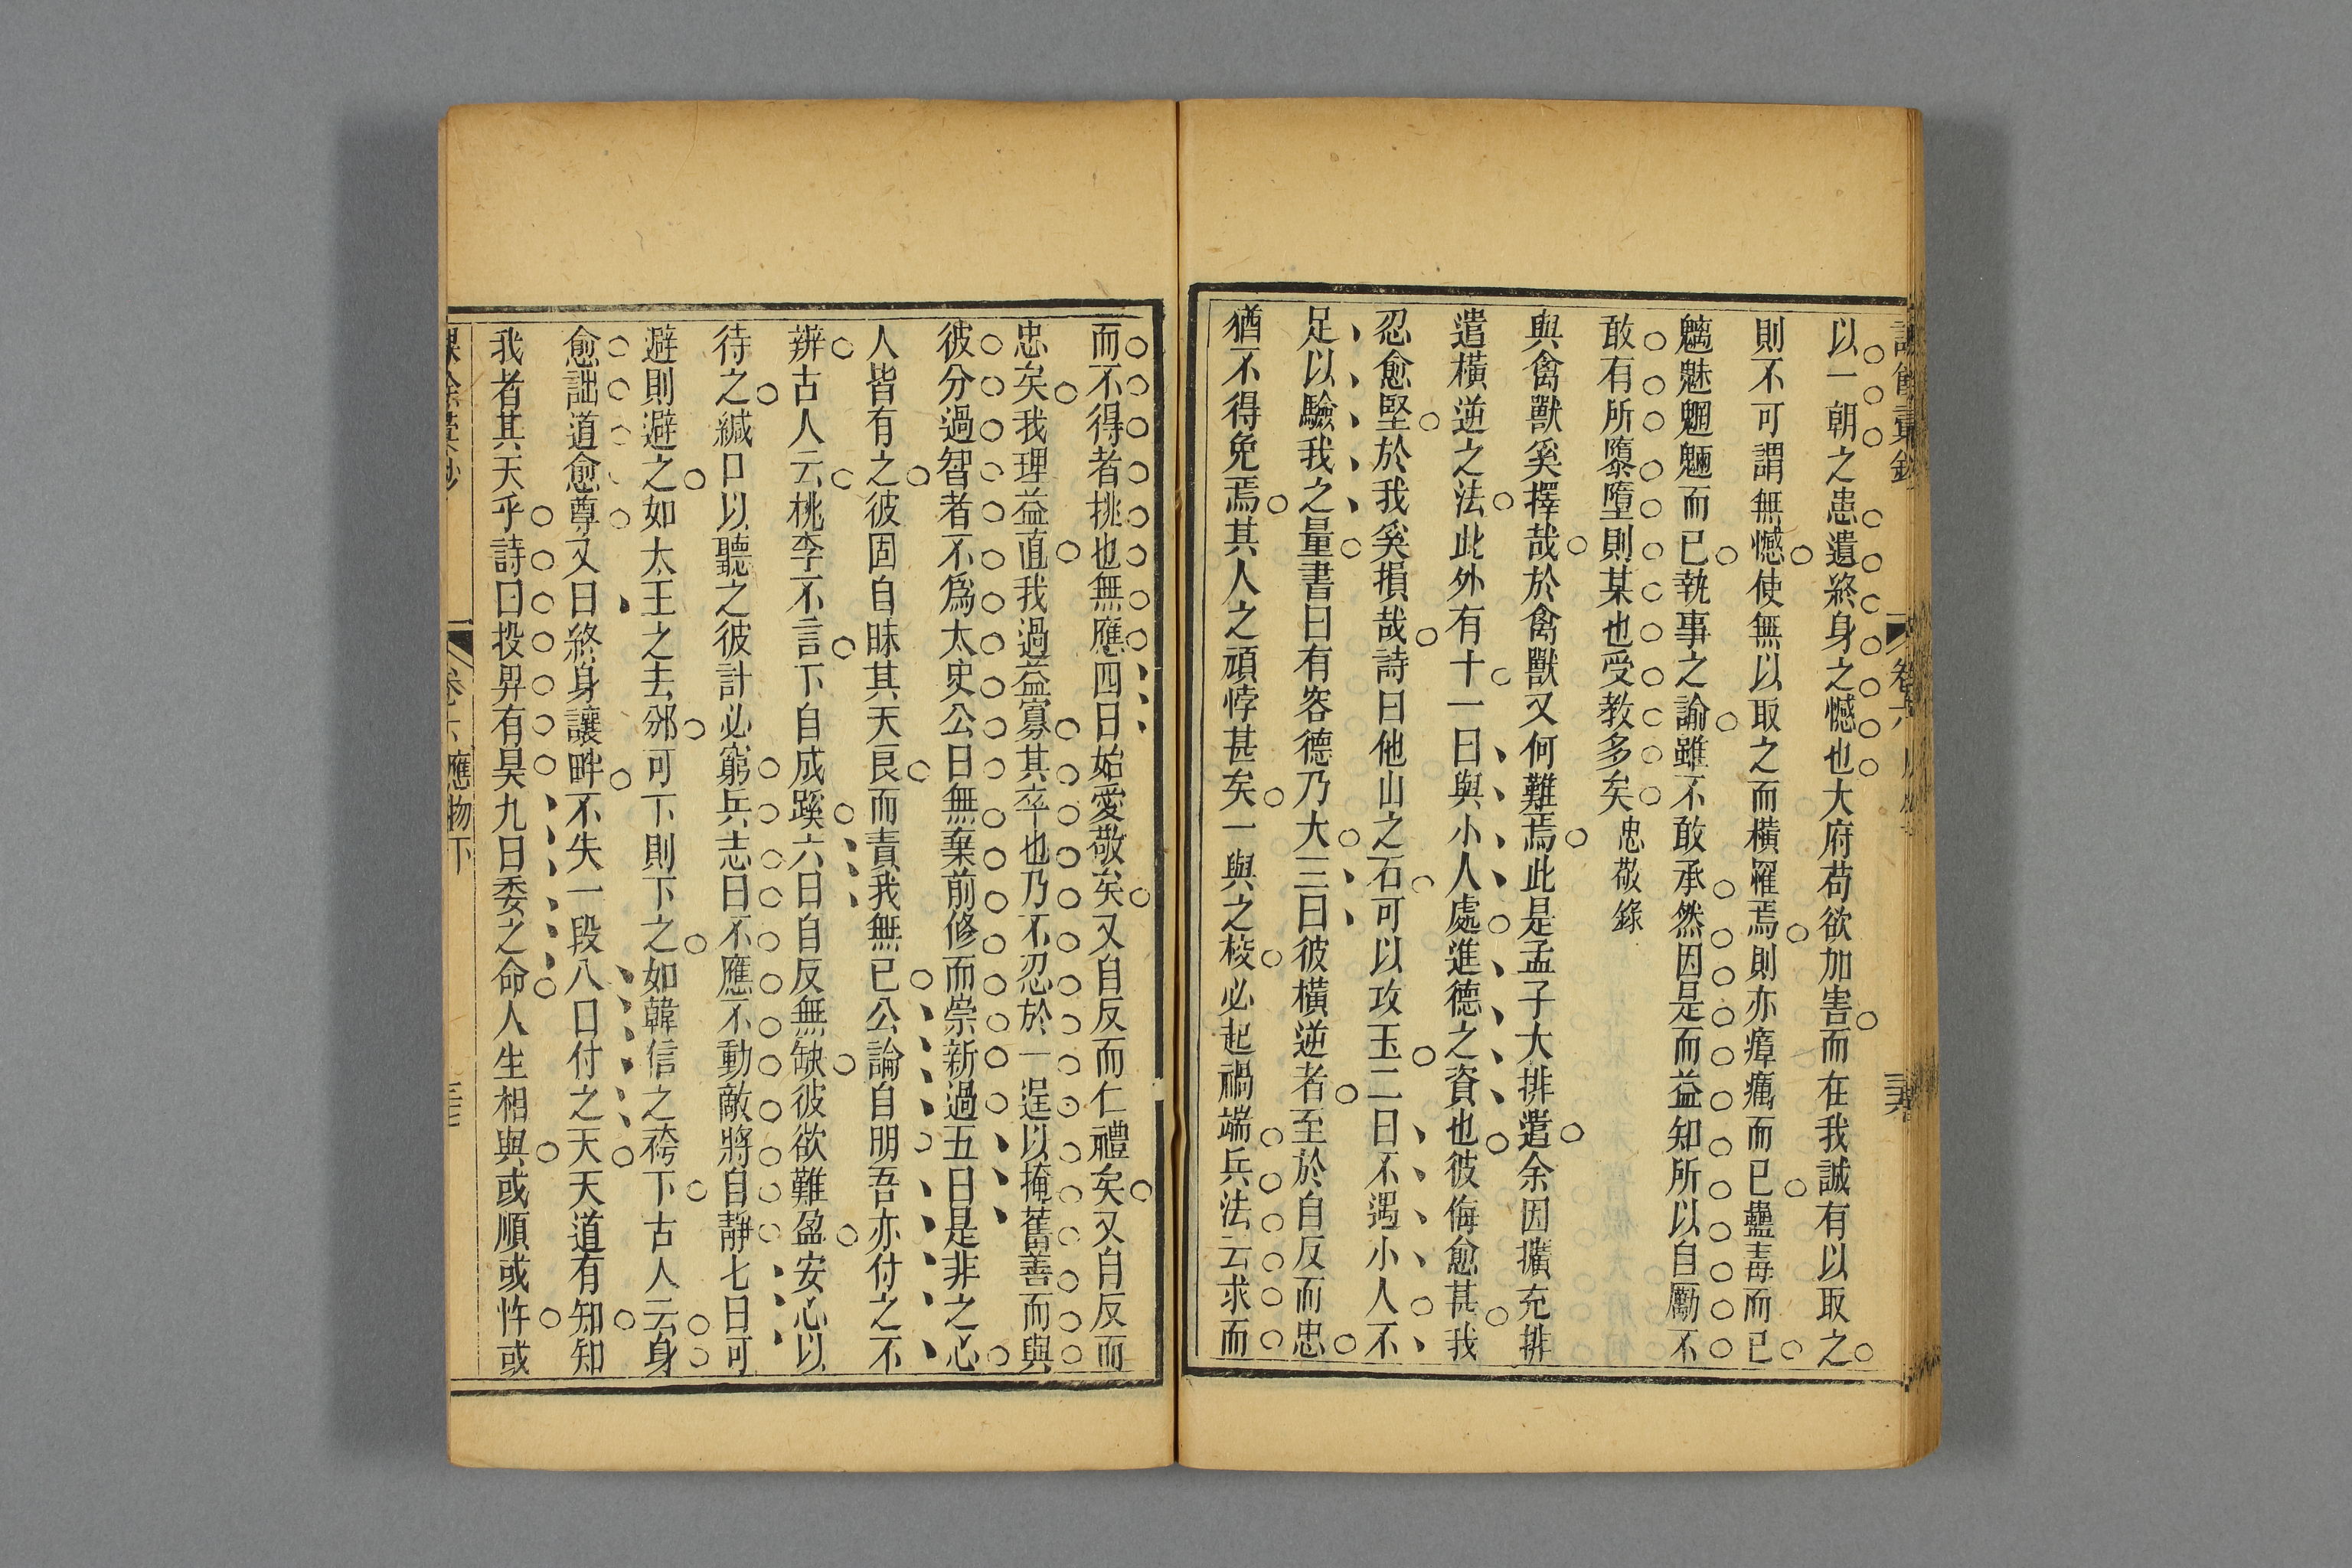 以一朝之患遺終身之憾也大府苟欲加害而在我誠有以取之
則不可謂無憾使無以取之而橫罹焉則亦瘴癘而已蠱毒而已
魑魅魍魎而已執事之諭雖不敢承然因是而益知所以自勵不
敢有所隳墮則某也受教多矣忠敬錄
與禽獸奚擇哉於禽獸又何難焉此是孟子大排遣余因擴充排
遣橫逆之法此外有十一曰與小人處進德之資也彼侮愈甚我
忍愈堅於我奚損哉詩曰他山之石可以攻玉二曰不遇小人不
足以驗我之量書曰有容德乃大三曰彼橫逆者至於自反而忠
猶不得免焉其人之頑悖甚矣一與之校必起禍端兵法云求而
而不得者挑也無應四曰始愛敬矣又自反而仁禮矣又自反而
忠矣我理益直我過益寡其卒也乃不忍於一逞以掩舊善而與
彼分過智者不爲太史公曰無棄前修而崇新過五曰是非之心
人皆有之彼固自昧其天良而責我無已公論自明吾亦付之不
辨古人云桃李不言下自成蹊六曰自反無缺彼欲難盈安心以
待之緘口以聽之彼計必窮兵志曰不應不動敵將自靜七曰可
避則避之如太王之去邠可下則下之如韓信之袴下古人云身
愈詘道愈尊又曰終身讓畔不失一段八曰付之天天道有知知
我者其天乎詩曰投畀有昊九曰委之命人生相與或順或忤或
卷六 應物下